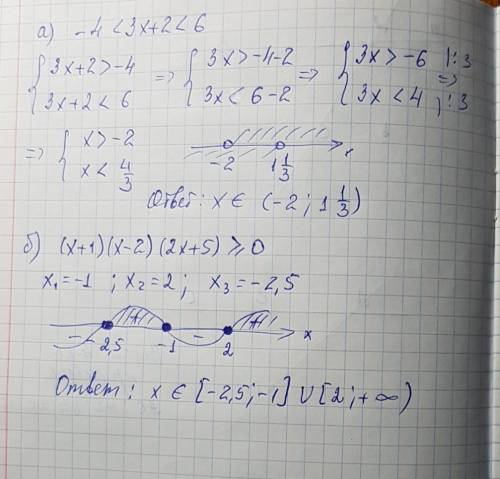 а) -4 < 3x+2 < 6
{ 3x+2 > -4 => { 3x > -4-2 => { 3x > -6 |:3 =>
{ 3x+2 < 6 { 3x < 6-2 { 3x < 4 |:3
=> { x > -2
{ x < 4/3
-2 1 1/3 x
Ответ: x ∈ (-2; 1 1/3)
б) (x+1)(x-2)(2x+5) ≥ 0
x₁=-1 ; x₂=2; x₃=-2,5
- + - + x
-2,5 -1 2
Ответ: x ∈ [-2,5;-1] ∪ [2;+∞)